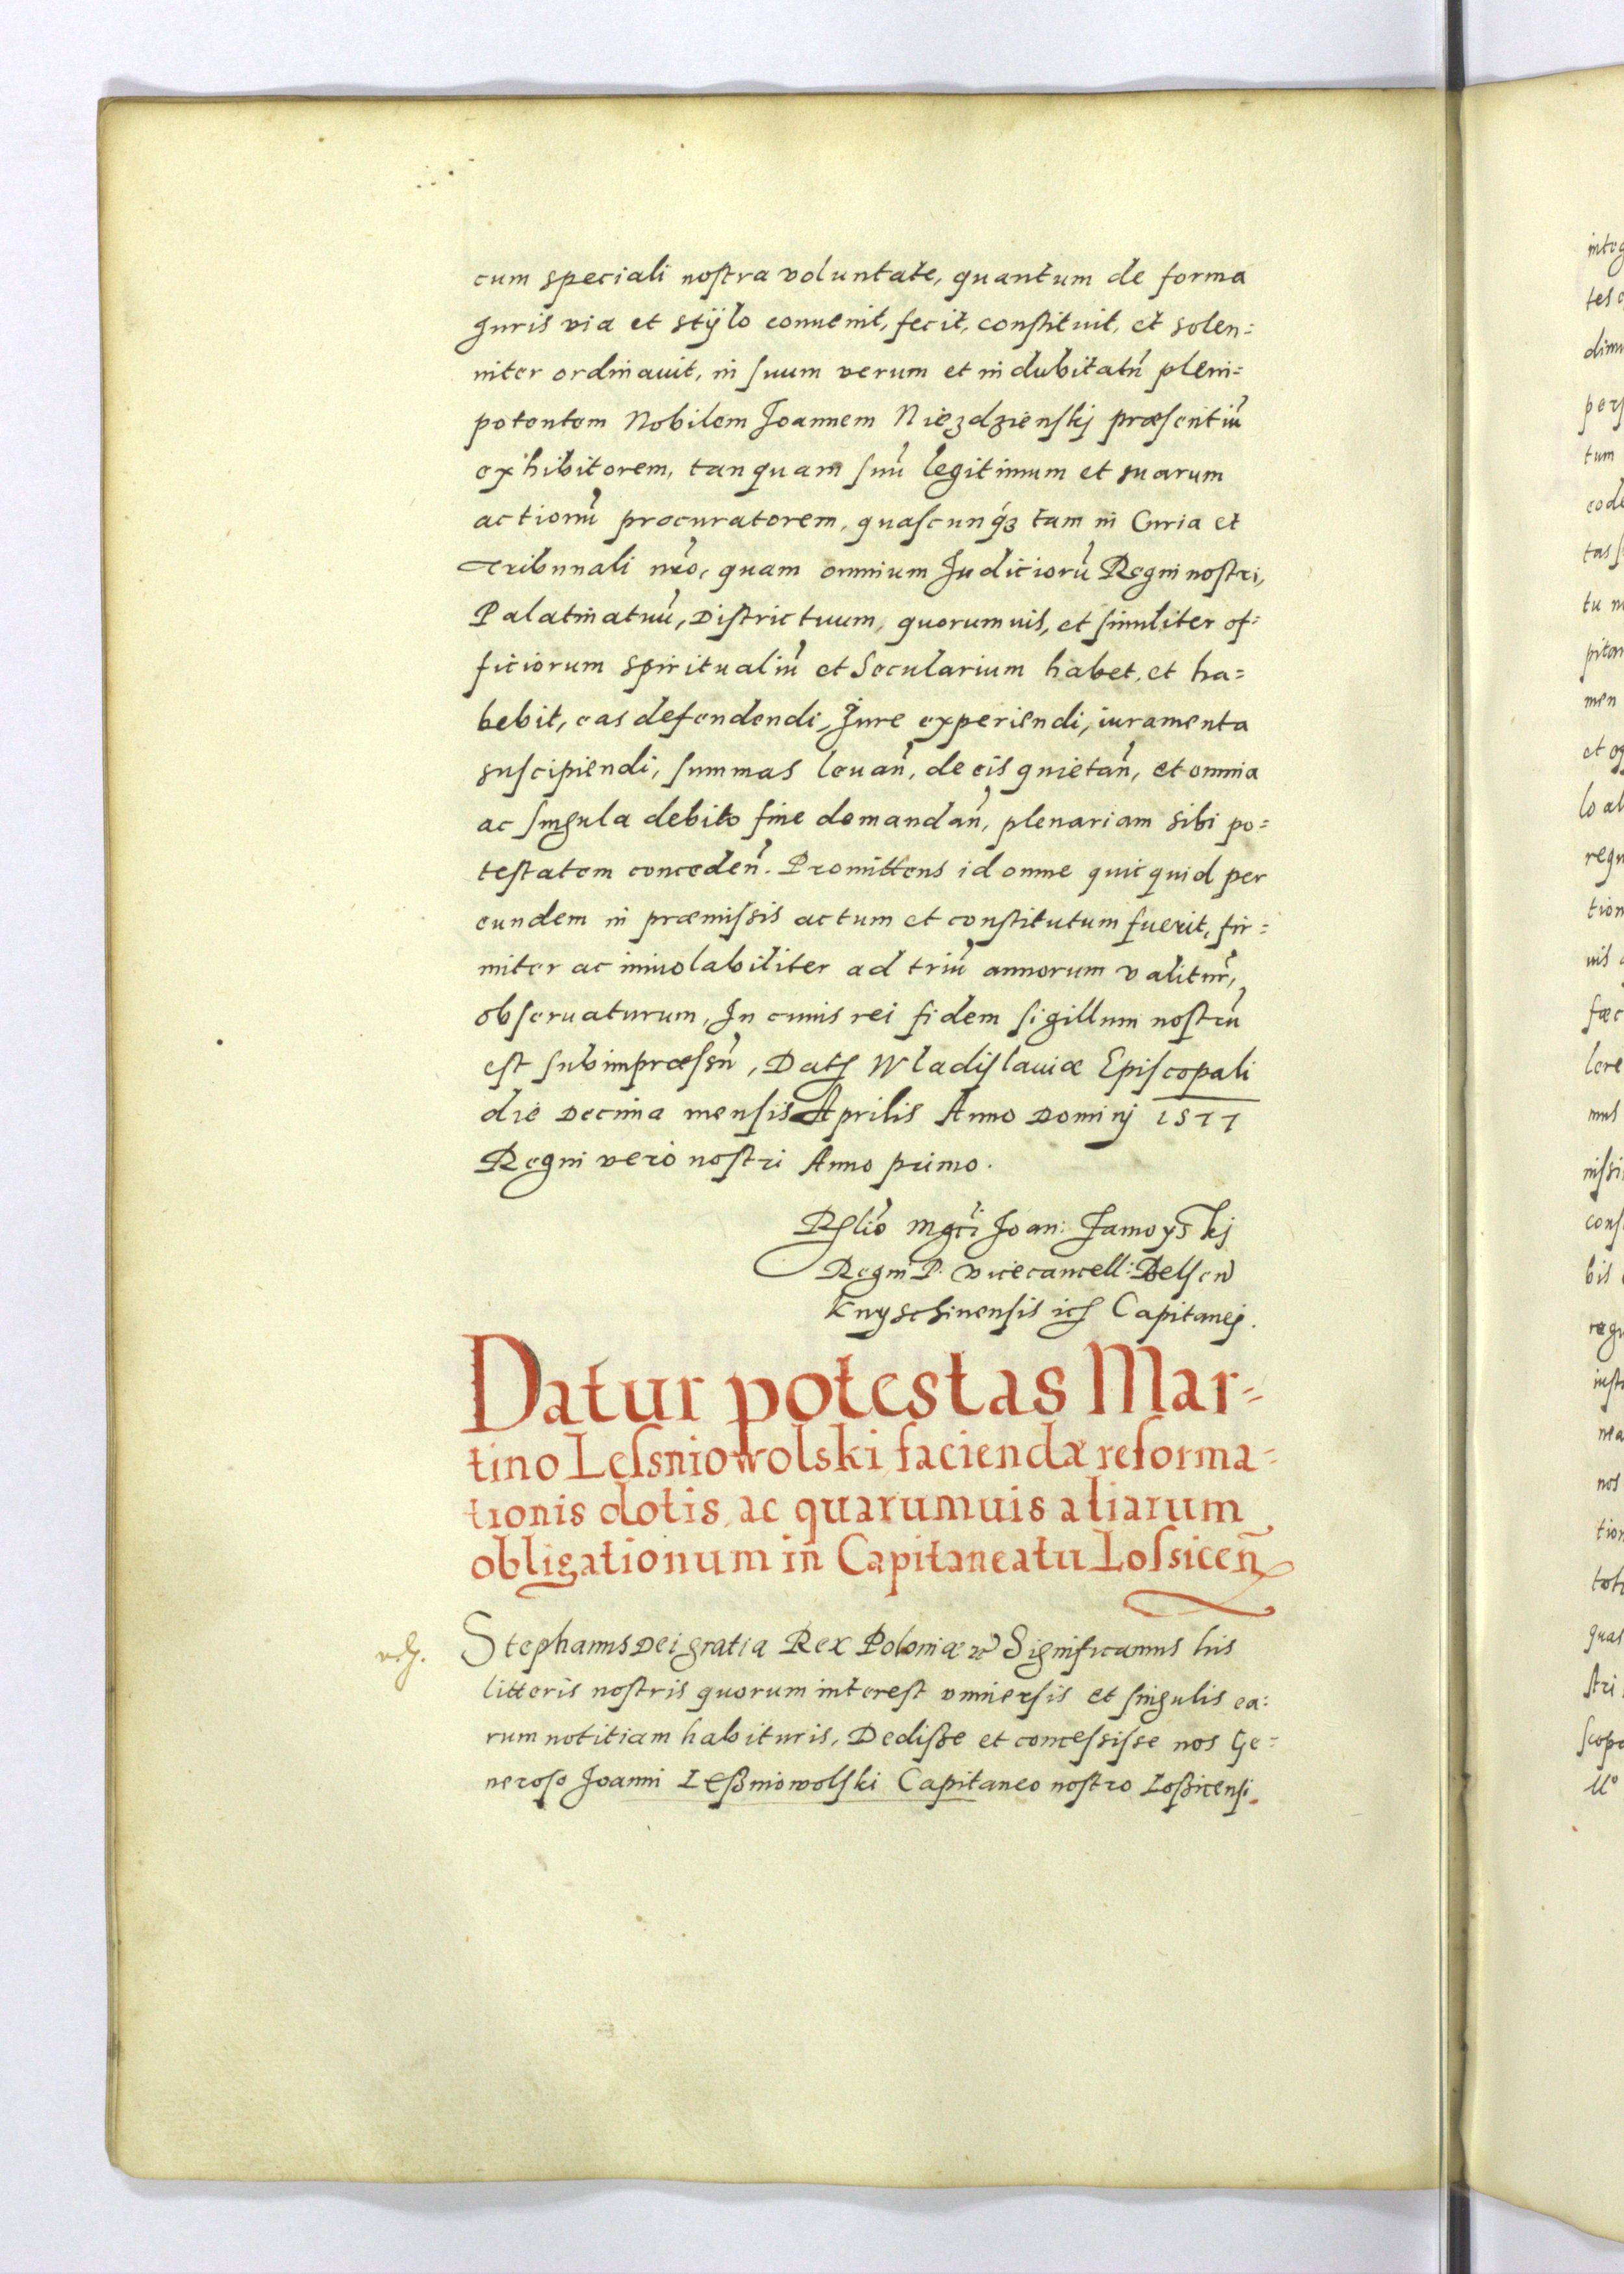 cum speciali nostra voluntate, quantum de forma
Juris via et stÿlo conuenit, fecit, constituit, et solen=
niter ordinauit, in suum verum et indubitatũ pleni=
potentem Nobilem Joannem Niezdzienskj præsentiũ
exhibitorem, tanquam suũ legitimum et suarum
actionũ procuratorem, quascunq́ꝫ tam in Curia et
Tribunali nr̃o, quam omnium Judiciorũ Regni nostri,
Palatinatuũ, Districtuum, quorumuis, et similiter of=
ficiorum spiritualiũ et Secularium habet, et ha=
bebit, eas defendendi, Jure experiendi, iuramenta
suscipiendi, summas leuañ, de eis quietañ, et omnia
ac singula debito fine demandañ, plenariam sibi po=
testatem conceden̄. Promittens id omne quicquid per
eundem in præmissis actum et constitutum fuerit, fir=
miter ac inuiolabiliter ad triũ annorum valitur̃,
obseruaturum, In cuius rei fidem sigillum nostrũ
est subimpræssũ, Datꝭ Wladislauiæ Episcopali
die Decima mensis Aprilis Anno Dominj 1577
Regni vero nostri Anno primo.
Rꝭlĩo Mgc̃i Joan: Zamoyskj
Regni P. Vicecancell: Belsen
Knyschinensis icꝭ Capitanej.
Datur potestas Mar=
tino Lessniowolski faciendæ reforma=
tionis dotis ac quarumuis aliarum
obligationum in Capitaneatu Lossiceñ
Stephanus Dei gratia Rex Poloniæ ꝛc Significamus his
litteris nostris quorum interest vniuersis et singulis ea:
rum notitiam habituris, Dediße et concessisse nos Ge=
neroso Joanni Leßniowolski Capitaneo nostro Loßicensi